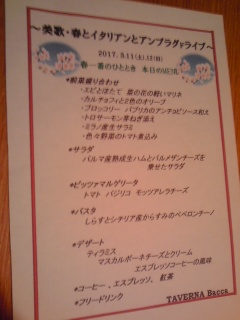 ～美歌・春とイタリアンとアンプラグドライブ～
2017. 3.11(土) 17:30
春一番のひととき 本日の
*前菜盛り合わせ
・エビとほたて 菜の花の軽いマリネ
・カルチョフィと2色のオリーブ
・ブロッコリー パプリカのアンチョビソース和え
・トロサーモン芽ねぎ添え
・ミラノ産生サラミ
・色々野菜のトマト煮込み
*サラダ
パルマ産熟成生ハムとパルメザンチーズを
乗せたサラダ
*ピッツァマルゲリータ
トマト バジリコ モッツアレラチーズ
*パスタ
しらすとシチリア産からすみのペペロンチーノ
*デザート
ティラミス
マスカルポーネチーズとクリーム
エスプレッソコーヒーの風味
*コーヒー、エスプレッソ、紅茶
*フリードリンク
TAVERNA Bacca